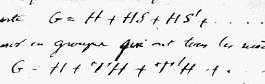 G = H + HS + HS' + . . . .
en groupes qui ont tous les
G = H + TH + T'H + .